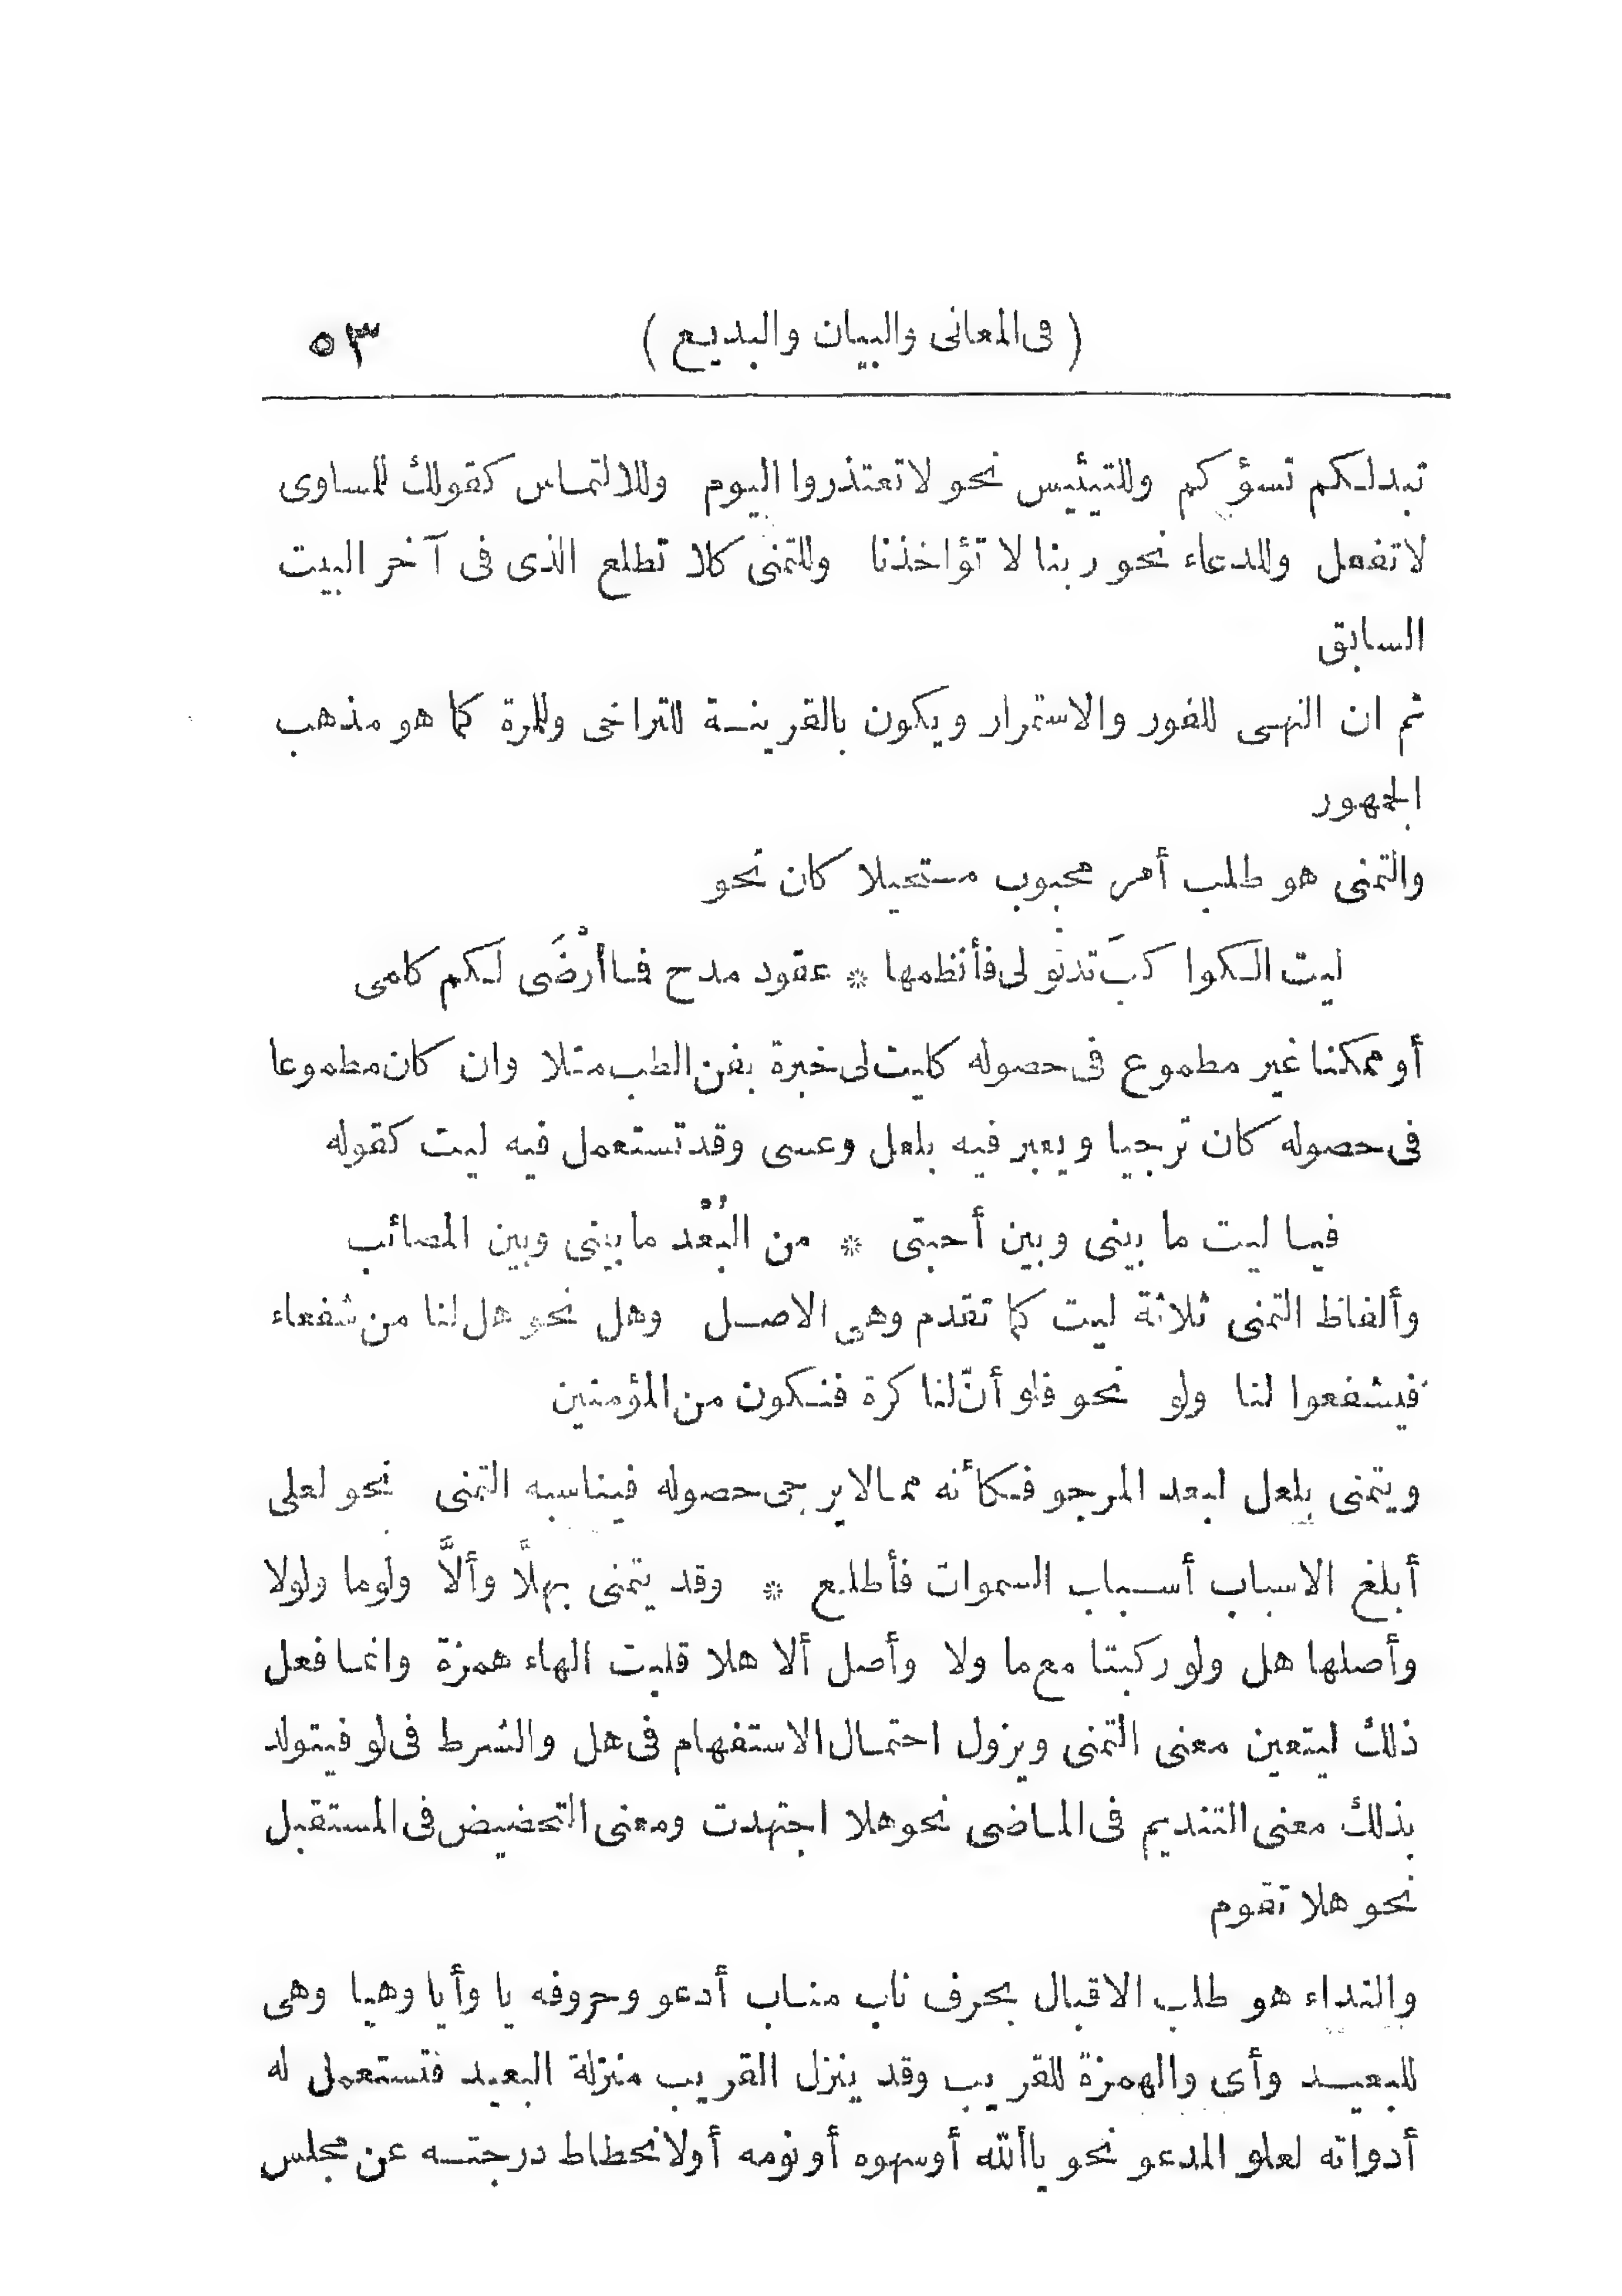 (فى المعانى والبيان والبديع) ٥٣
تبدلكم تسؤكم وللتيئيس نحو لا تعتذروا اليوم وللالتماس كقولك للمساوى
لا تفعل وللدعاء نحو ربنا لا تؤاخذنا وللتمنى كلا تطلع الذى فى آخر البيت
السابق
ثم ان النهى للفور والاستمرار ويكون بالقرينة للتراخى وللمرة كما هو مذهب
الجمهور
والتمنى هو طلب أمر محبوب مستحيلا كان نحو
ليت الكواكبَ تدنو لى فأنظمها * عقود مدح فما أرْضَى لكم كلمى
أو ممكنا غير مطموع فى حصوله كليت لى خبرة بفن الطب مثلا وان كان مطموعا
فى حصوله كان ترجيا ويعبر فيه بلعل وعسى وقد تستعمل فيه ليت كقوله
فيا ليت ما بينى وبين أحبتى * من البُعْد ما بينى وبين المصائب
وألفاظ التمنى ثلاثة ليت كما تقدم وهى الاصل وهل نحو هل لنا من شفعاء
فيشفعوا لنا ولو نحو فلو أنّ لنا كرة فنكون من المؤمنين
ويتمنى بلعل لبعد المرجو فكأنه مما لا يرجى حصوله فيناسبه التمنى نحو لعلى
أبلغ الاسباب أسباب السموات فأطلع * وقد يتمنى بهلَّا وألَّا ولوما ولولا
وأصلها هل ولو ركبتا مع ما ولا وأصل ألا هلا قلبت الهاء همزة وانما فعل
ذلك ليتعين معنى التمنى ويزول احتمال الاستفهام فى هل والشرط فى لو فيتولد
بذلك معنى التنديم فى الماضى نحو هلا اجتهدت ومعنى التحضيض فى المستقبل
نحو هلا تقوم
والنداء هو طلب الاقبال بحرف ناب مناب أدعو وحروفه يا وأيا وهيا وهى
للبعيد وأى والهمزة للقريب وقد ينزل القريب منزلة البعيد فتستعمل له
أدواته لعلو المدعو نحو يا ألله أو سهوه أو نومه أو لانحطاط درجته عن مجلس